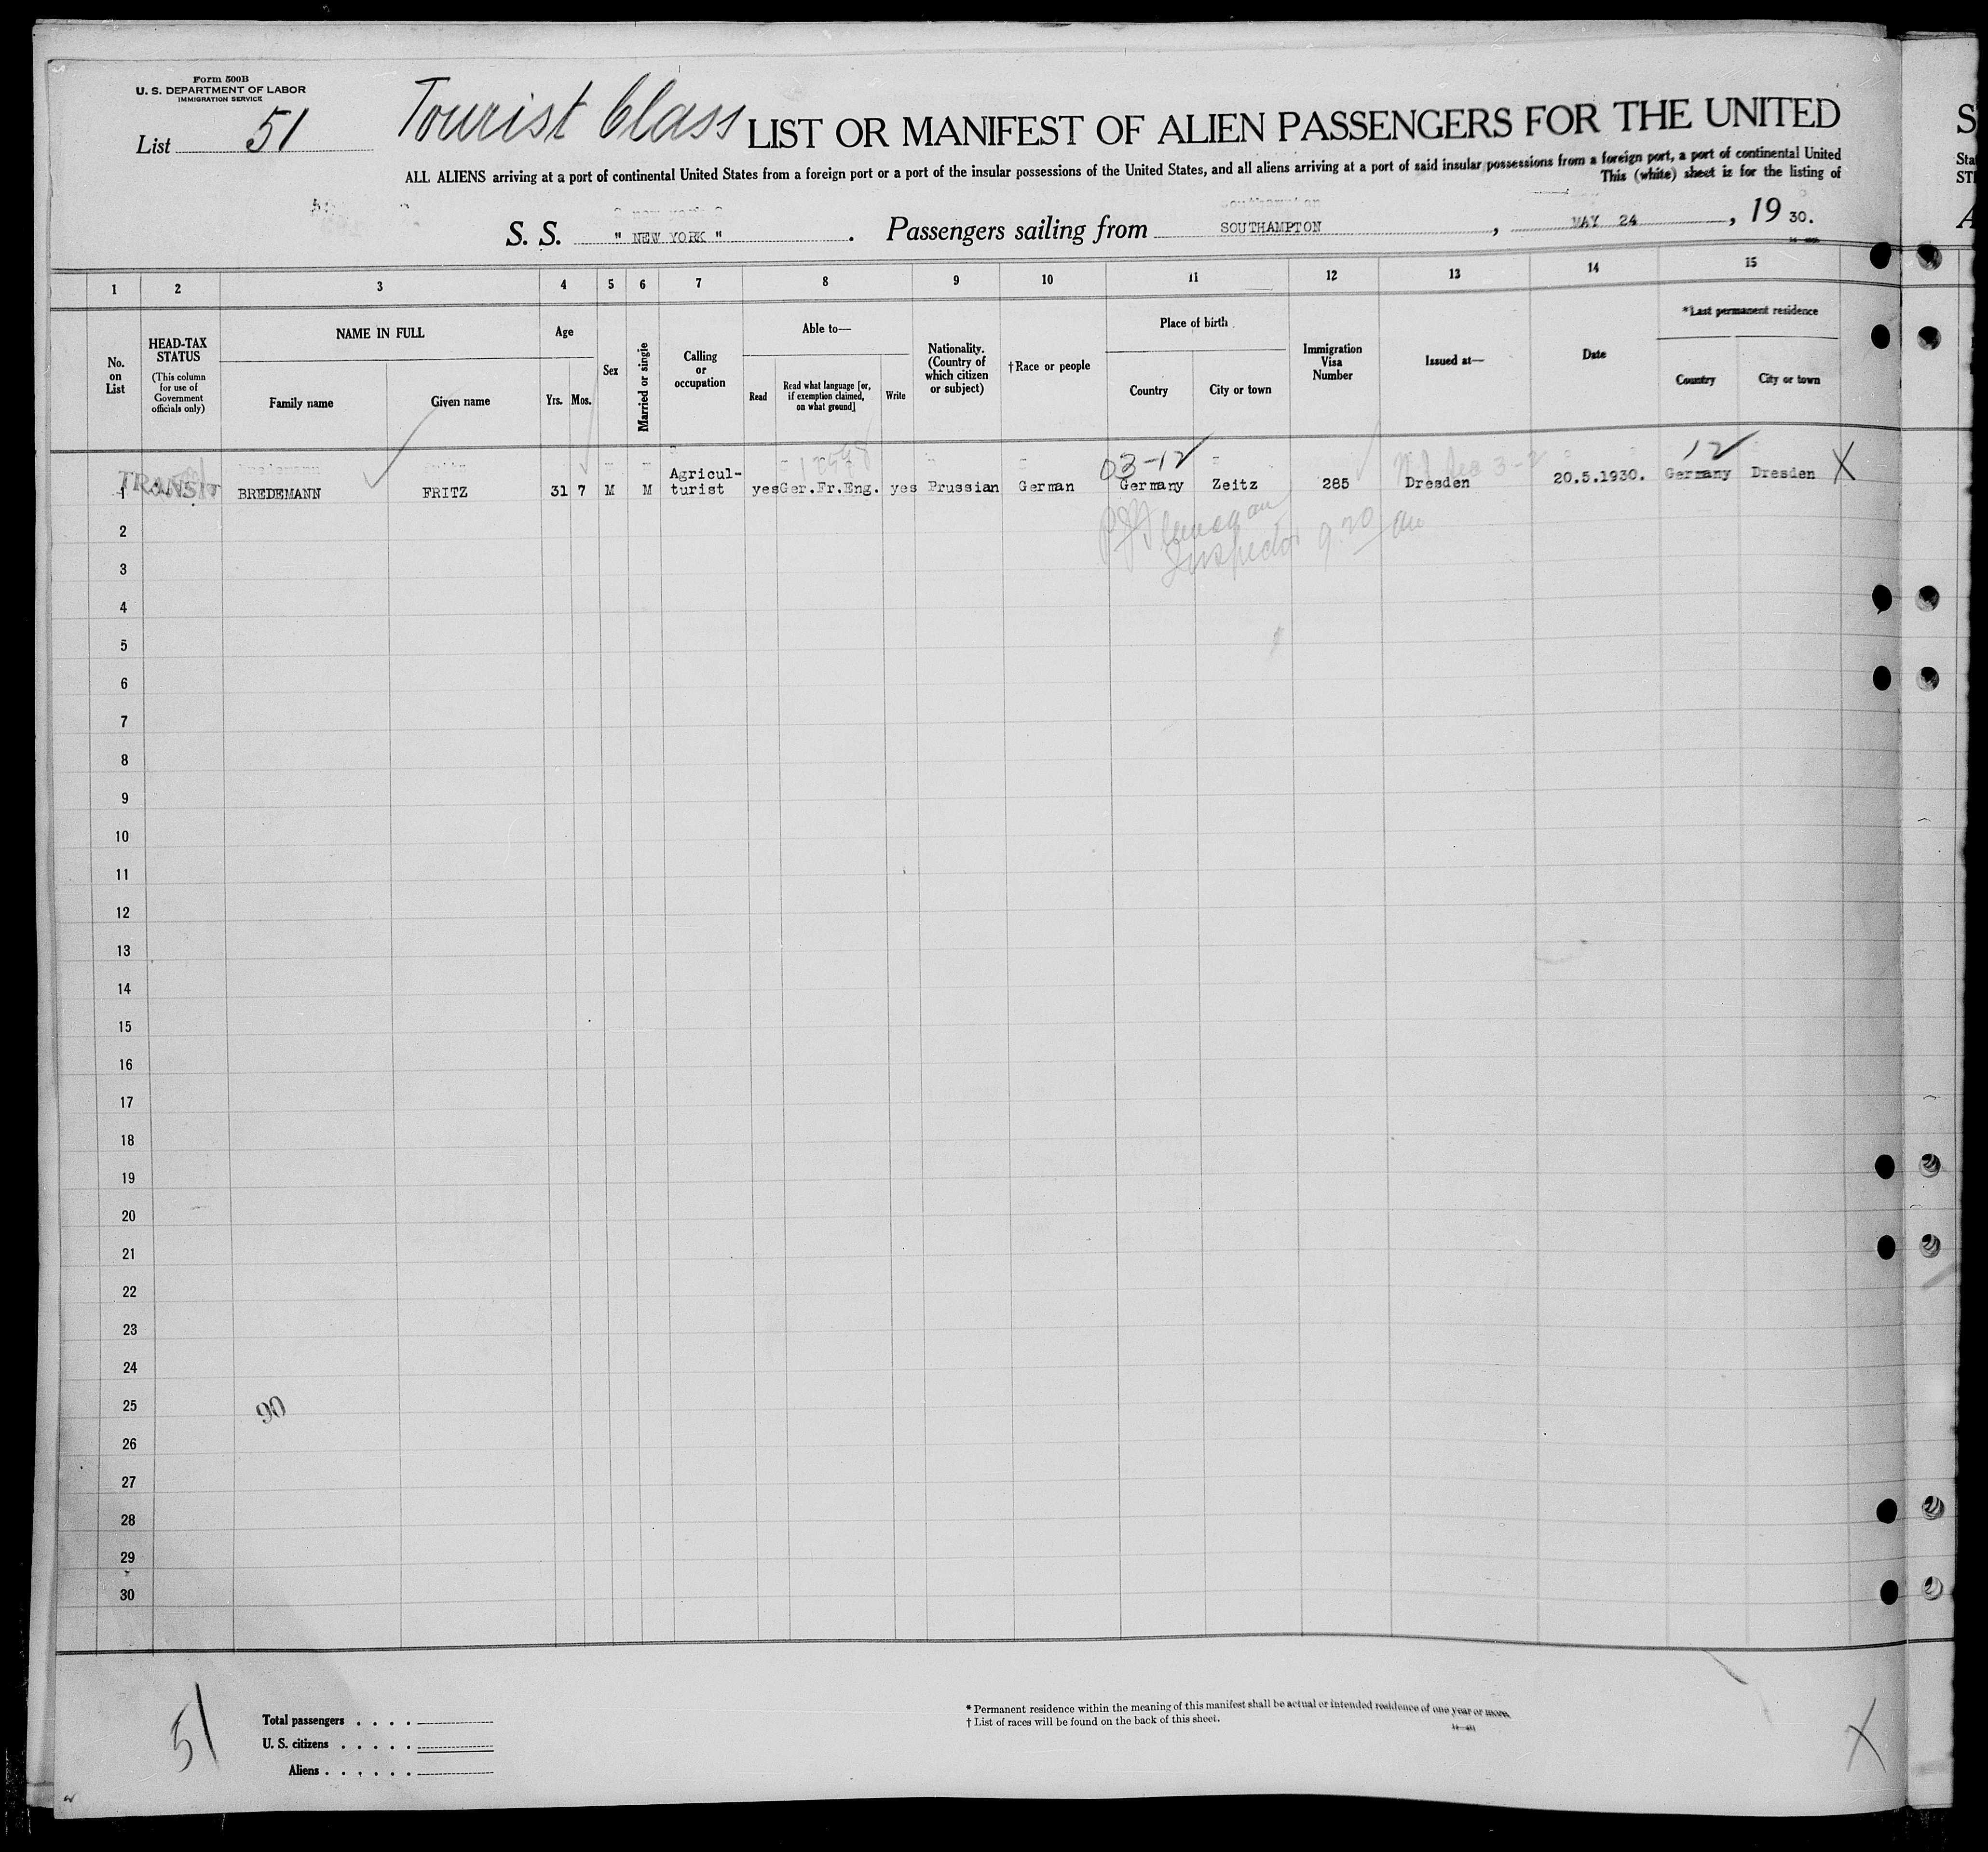 Form 500B
U. S. DEPARTMENT OF LABOR
IMMIGRATION SERVICE
List 51
Tourist Class
LIST OR MANIFEST OF ALIEN PASSENGERS FOR THE UNITED
ALL ALIENS arriving at a port of continental United States from a foreign port or a port of the insular possessions of the United States, and all aliens arriving at a port of said insular possessions from a foreign port, a port of continental United
This (white) sheet is for the listing of
S. S. " NEW YORK " . Passengers sailing from SOUTHAMPTON , MAY 24 , 19 30.
1 2 3 4 5 6 7 8 9 10 11 12 13 14 15
No. on List
HEAD-TAX STATUS
(This column for use of Government officials only)
NAME IN FULL
Family name
Given name
Age
Yrs.
Mos.
Sex
Married or single
Calling or occupation
Able to—
Read
Read what language [or, if exemption claimed, on what ground]
Write
Nationality. (Country of which citizen or subject)
†Race or people
Place of birth
Country
City or town
Immigration Visa Number
Issued at—
Date
*Last permanent residence
Country
City or town
03-12
12
X
TRANSIT
1 BREDEMANN FRITZ 31 7 M M Agricul-
turist yes Ger.Fr.Eng. yes Prussian German Germany Zeitz 285 Dresden 20.5.1930. Germany Dresden
Inspector 9.20 am
2
3
4
5
6
7
8
9
10
11
12
13
14
15
16
17
18
19
20
21
22
23
24
25
90
26
27
28
29
30
51
Total passengers . . . .
U. S. citizens . . . . .
Aliens . . . . . .
* Permanent residence within the meaning of this manifest shall be actual or intended residence of one year or more.
† List of races will be found on the back of this sheet.
X